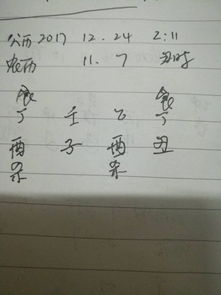 公历2017 12.24 2:11
农历 11.7 丑时
食 食
丁 壬 乙 丁
酉 子 酉 丑
杀 杀